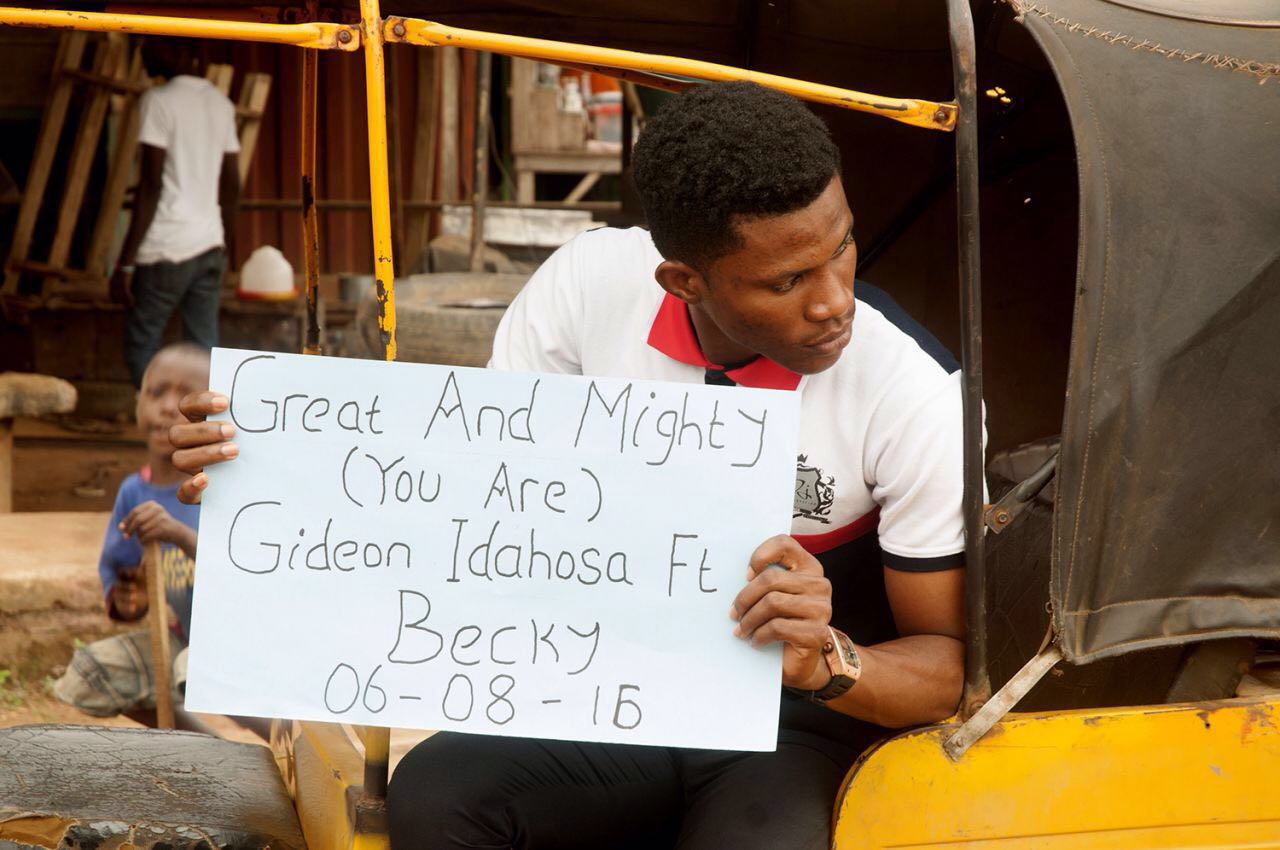 Great And Mighty
(You Are)
Gideon Idahosa Ft
Becky
06-08-16